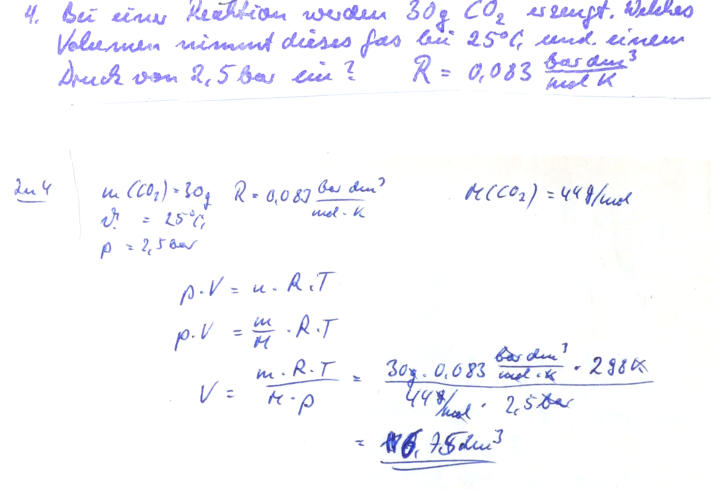 4. Bei einer Reaktion werden 30g CO₂ erzeugt. Welches
Volumen nimmt dieses Gas bei 25°C und einem
Druck von 2,5 bar ein? R = 0,083 bar dm³ / mol K
Zu 4
m (CO₂) = 30g R = 0,083 bar dm³ / mol · K M(CO₂) = 44 g/mol
ϑ = 25°C
p = 2,5 bar
p · V = n · R · T
p · V = m / M · R · T
V = m · R · T / M · p = 30g · 0,083 bar dm³ / mol · K · 298 K / 44 g/mol · 2,5 bar
= 6,75 dm³